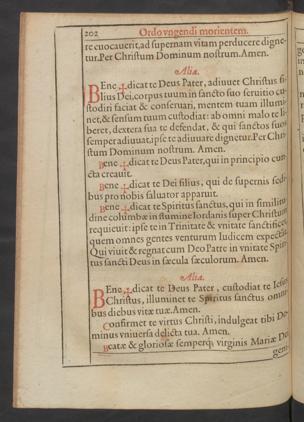 202 Ordo vngendi morientem.
re euocauerit, ad supernam vitam perducere digne-
tur. Per Christum Dominum nostrum. Amen.
Alia.
BEne ✠ dicat te Deus Pater, adiuuet Christus fi
lius Dei, corpus tuum in sancto suo seruitio cu-
stodiri faciat & conseruari, mentem tuam illumi-
net, & sensum tuum custodiat: ab omni malo te li-
beret, dextera sua te defendat, & qui sanctos suos
semper adiuuat, ipse te adiuuare dignetur. Per Chri-
stum Dominum nostrum. Amen.
Bene ✠ dicat te Deus Pater, qui in principio cun-
cta creauit.
Bene ✠ dicat te Dei filius, qui de supernis sedi-
bus pro nobis saluator apparuit.
Bene ✠ dicat te Spiritus sanctus, qui in similitu
dine columbæ in flumine Iordanis super Christum
requieuit: ipse te in Trinitate & vnitate sanctificet
quem omnes gentes venturum Iudicem expectāt.
Qui viuit & regnat cum Deo Patre in vnitate Spiri-
tus sancti Deus in sæcula sæculorum. Amen.
Alia.
BEne ✠ dicat te Deus Pater, custodiat te Iesus
Christus, illuminet te Spiritus sanctus omni-
bus diebus vitæ tuæ. Amen.
Confirmet te virtus Christi, indulgeat tibi Do-
minus vniuersa delicta tua. Amen.
Beatæ & gloriosæ semperq; virginis Mariæ Dei